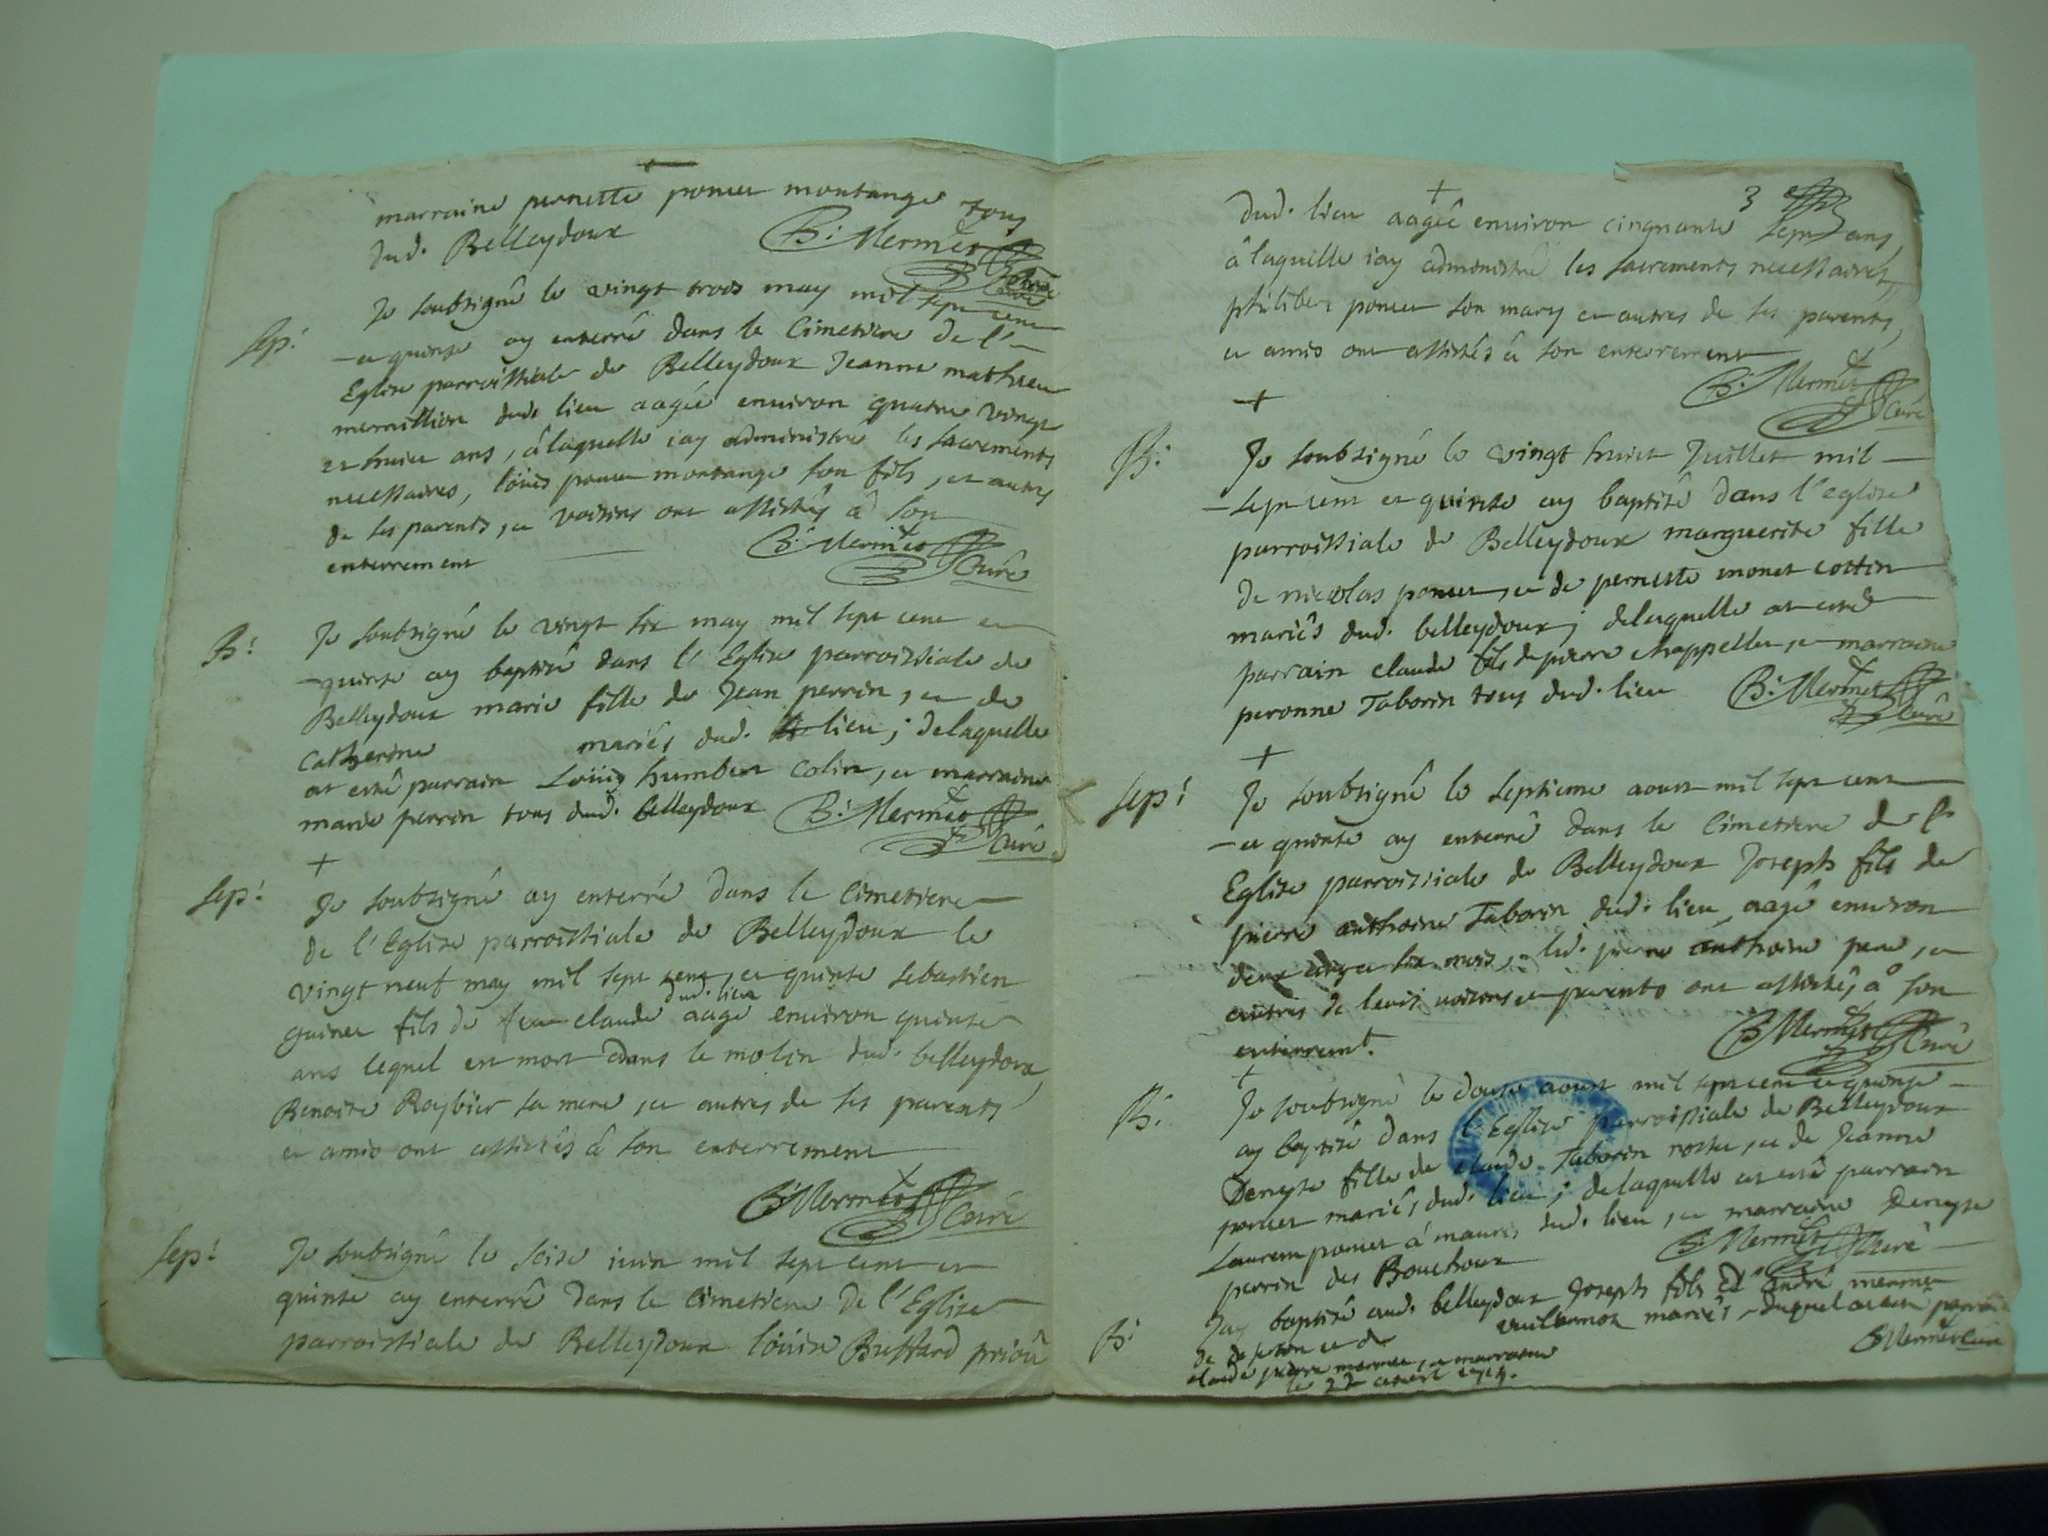 marraine pernette poncet montange tous
dud. Belleydoux B: Mermet Curé
Sep: Je soubsigné le vingt trois may mil sept cent
et quinse ay enterré dans le Cimetiere de l'
Eglise parroissiale de Belleydoux Jeanne mathieu
mermillion dud. lieu aagée environ quatre vingt
et huict ans, à laquelle iay administré les sacrements
necessaires, loüis poncet montange son fils, et autres
de ses parents, et voisins ont assistés à son
enterrement B: Mermet Curé
B: Je soubsigné le vingt six may mil sept cent et
quinse ay baptisé dans l'Eglise parroissiale de
Belleydoux marie fille de Jean perrin, et de
Catherine mariés dud. lieu; delaquelle
at esté parrain Loüis humbert Colin, et marraine
marie perrin tous dud. belleydoux B: Mermet Curé
Sep: Je soubsigné ay enterré dans le Cimetiere
de l'Eglise parroissiale de Belleydoux le
vingt neuf may mil sept cent, et quinse sebastien
dud. lieu
guinet fils de feu claude aagé environ quinse
ans lequel est mort dans le molin dud. belleydoux,
Benoite Roybier sa mere, et autres de ses parents
et amis ont assistés à son enterrement
B: Mermet Curé
Sep: Je soubsigné le seise iuin mil sept cent et
quinse ay enterré dans le cimetiere de l'Eglise
parroissiale de Belleydoux loüise Buffard
3
dud. lieu aagée environ cinquante sept ans,
à laquelle iay administré les sacrements necessaires,
philibert poncet son mary et autres de ses parents,
et amis ont assistés à son enterrement
B: Mermet Curé
B: Je soubsigné le vingt huict Juillet mil
sept cent et quinse ay baptisé dans l'eglise
parroissiale de Belleydoux marguerite fille
de nicolas poncet, et de pernette monet cottin
mariés dud. belleydoux; delaquelle at esté
parrain claude fils de pierre chappellu, et marraine
peronne Taborin tous dud. lieu B: Mermet Curé
Sep: Je soubsigné le septieme aoust mil sept cent
et quinse ay enterré dans le Cimetiere de l'
Eglise parroissiale de Belleydoux Joseph fils de
pierre anthoine Taborin dud. lieu, aagé environ
deux ans et six mois, led. pierre anthoine pere, et
autres de leurs voisins et parents ont assistés à son
enterremt. B: Mermet Curé
B: Je soubsigné le douse aoust mil sept cent et quinse
ay baptisé dans l'Eglise parroissiale de Belleydoux
Denyse fille de claude Taborin rostu, et de Jeanne
poncet mariés dud. lieu; delaquelle at esté parrain
Laurent poncet à mauris dud. lieu, et marraine Denyse
perrin des Bouchoux B: Mermet Curé
B: Jay baptisé aud. belleydoux Joseph fils d'andré mermet
de et de mariés, duquel at esté parrain
claude pierre mermet, et marraine B Mermet Curé
le 22